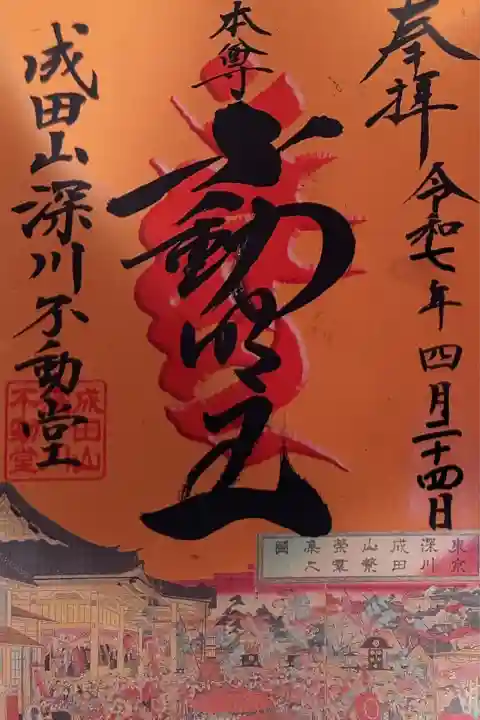 奉拝
令和七年四月二十四日
本尊
不動明王
成田山深川不動堂
成田山
不動堂
東京
深川
成田
山繁
栄業